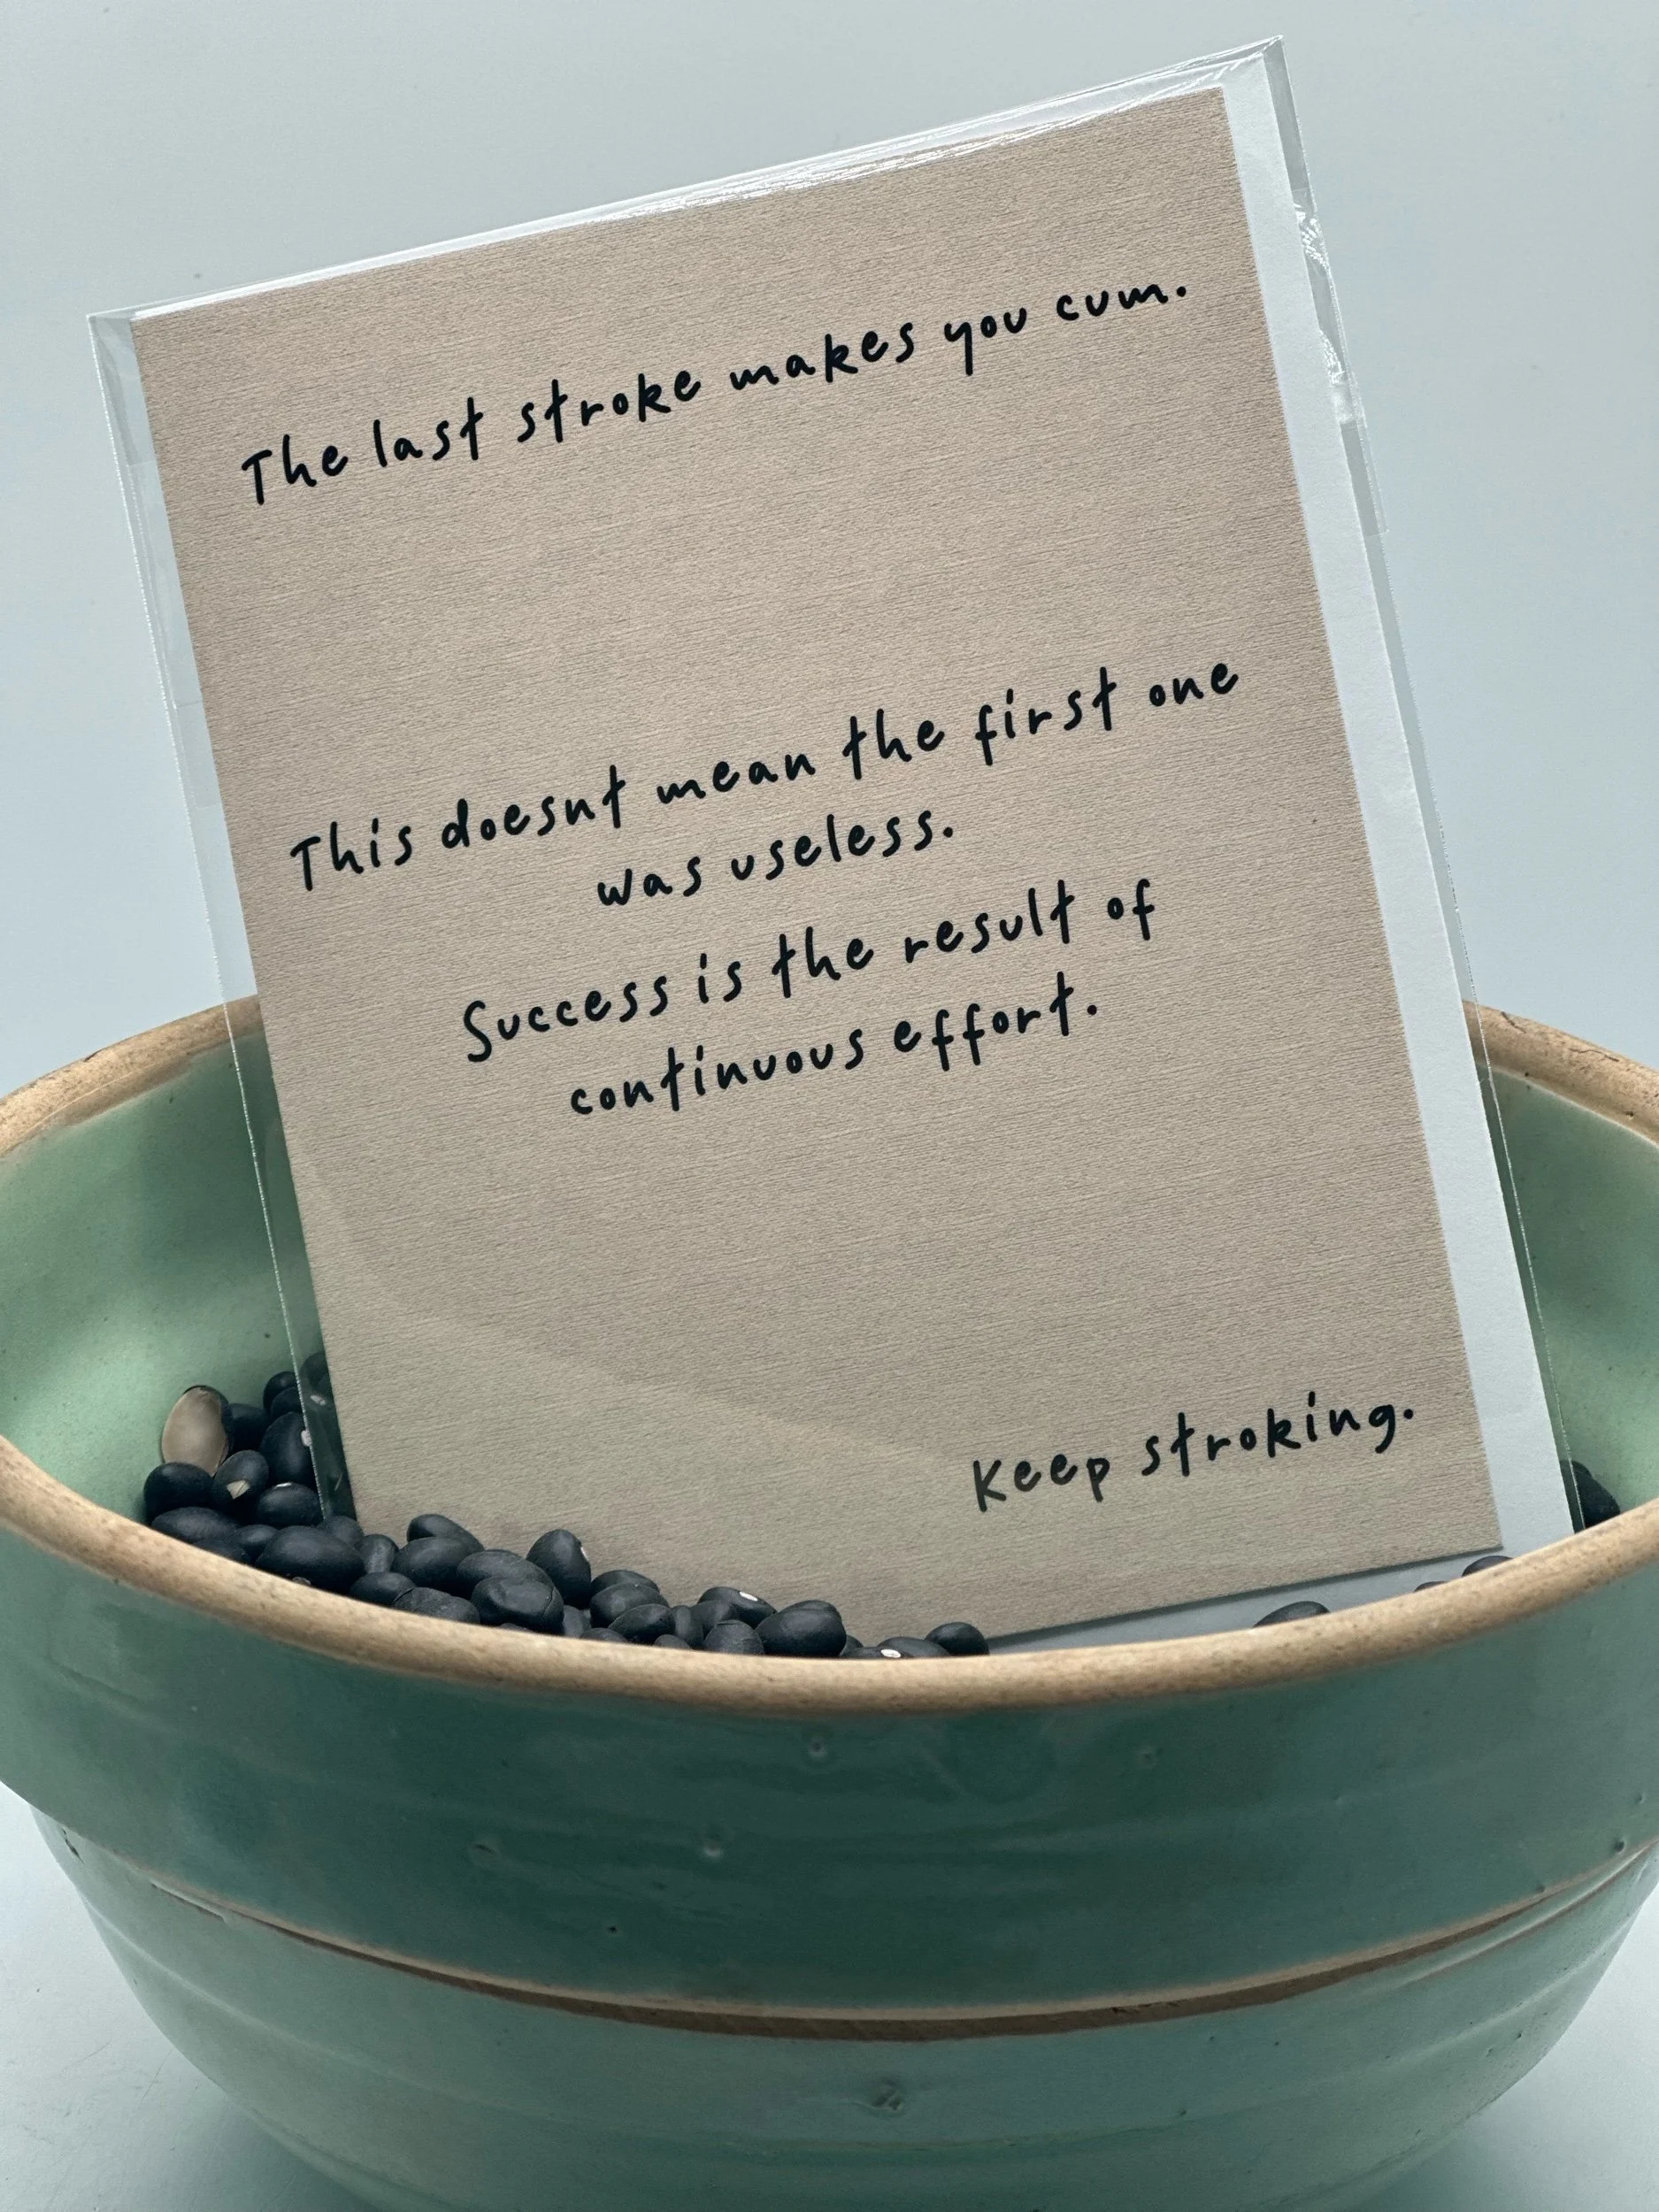 The last stroke makes you cum.
This doesnt mean the first one
was useless.
Success is the result of
continuous effort.
Keep stroking.